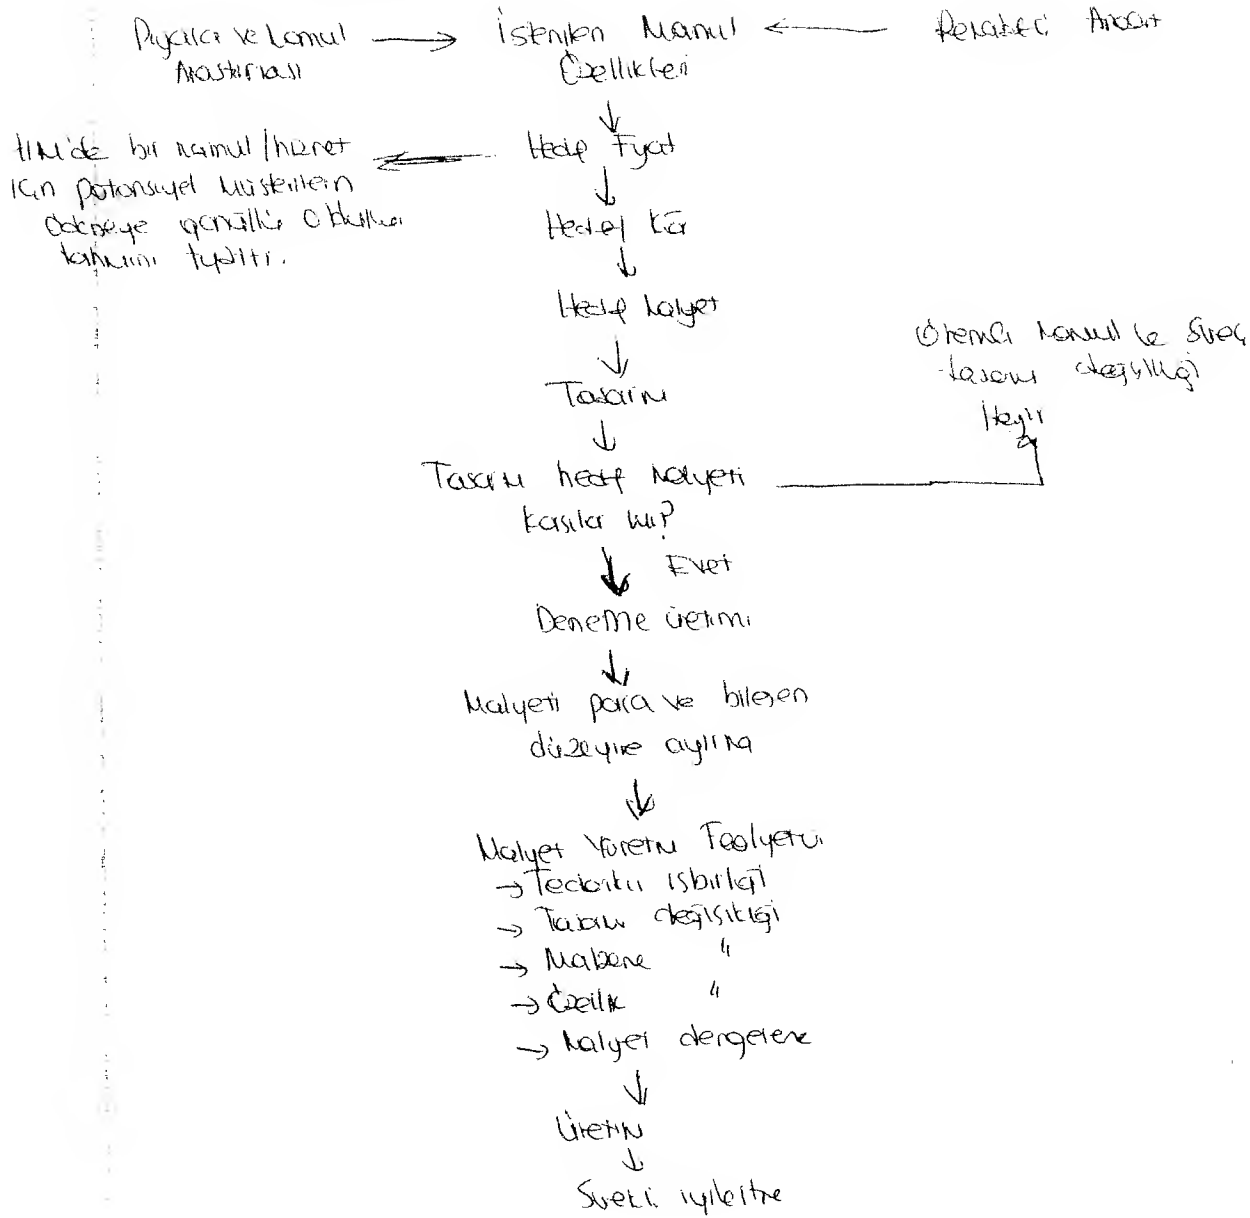 Piyasa ve Mamul → İstenilen Mamul ← Rekabetçi
Araştırması Özellikleri
↓
Hedef Fiyat
bir mamul/hizmet
için potansiyel müşterilerin
ödemeye gönüllü oldukları
tahmini fiyattır.
↓
Hedef Kâr
↓
Hedef Maliyet
↓
Tasarım
↓
Tasarım hedef maliyeti
karşılar mı?
mamul ve süreç
tasarım değişikliği
Hayır
↓ Evet
Deneme üretimi
↓
Maliyeti parça ve bileşen
düzeyine ayırma
↓
Maliyet Yönetim Faaliyetleri
→ Tedarikçi işbirliği
→ Tasarım değişikliği
→ Malzeme "
→ Özellik "
→ Maliyet dengeleme
↓
Üretim
↓
Sürekli iyileştirme